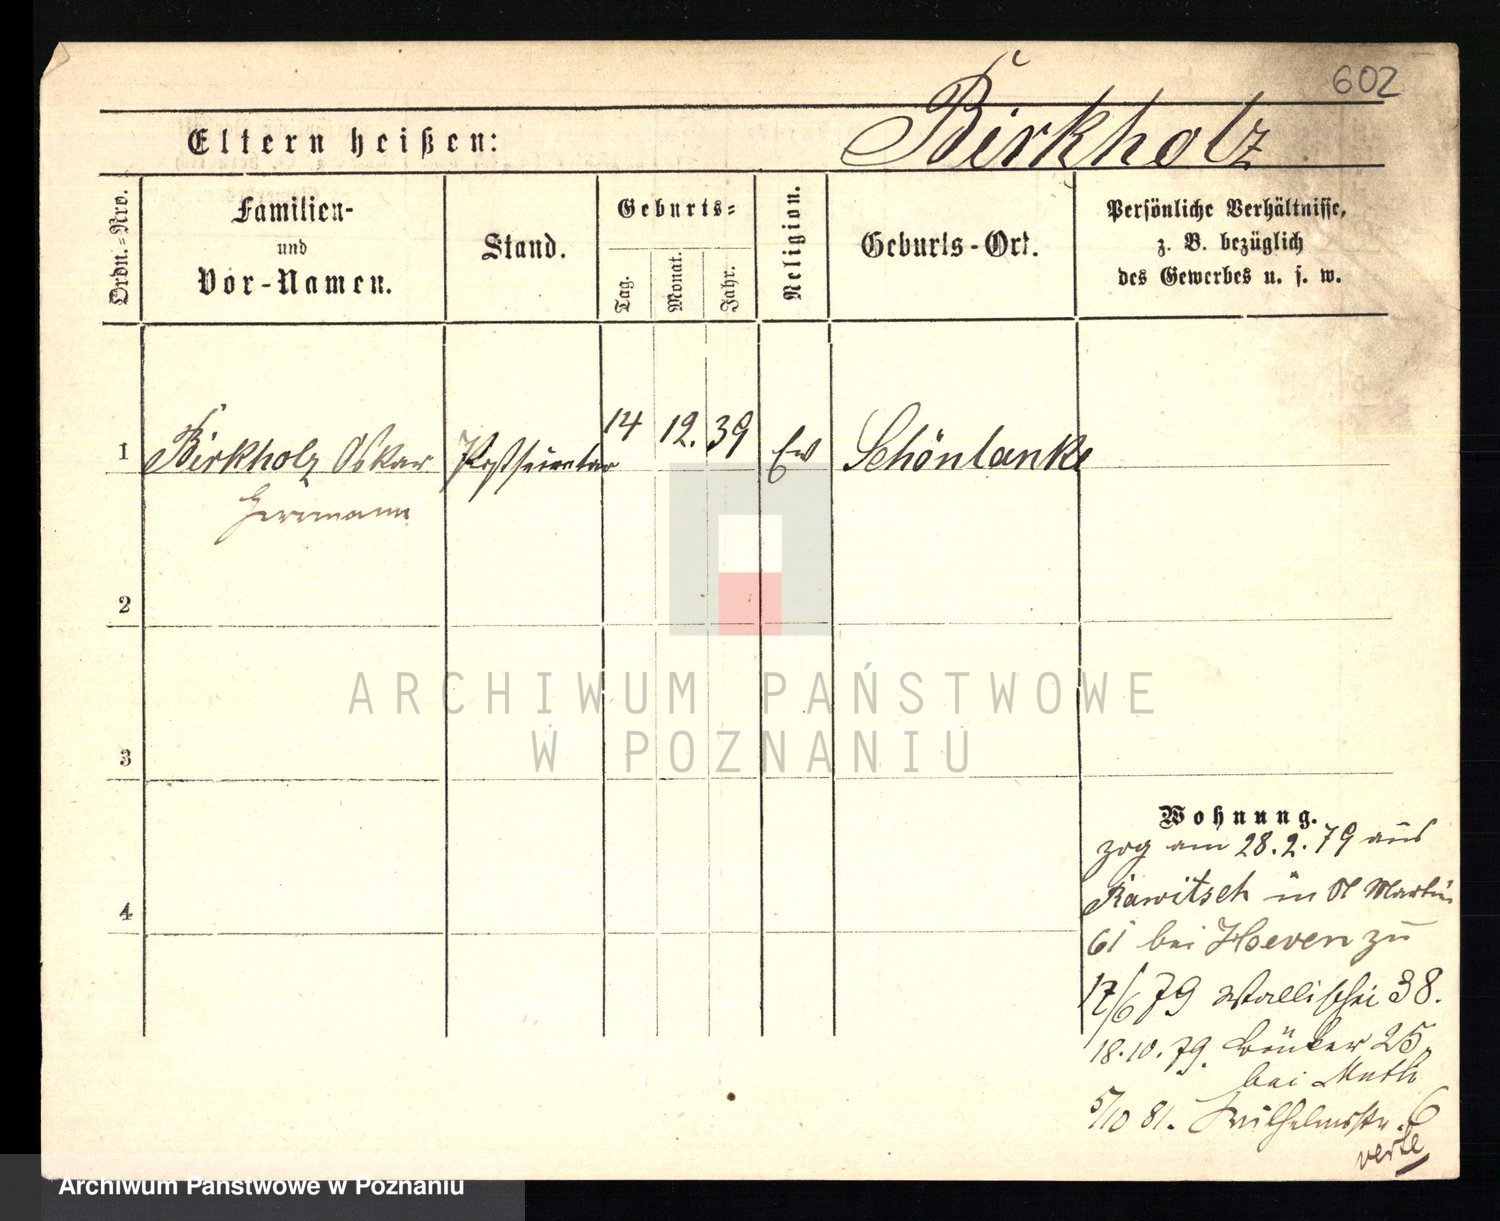 602
Birkholz
Eltern heißen:
Ordn.-Nro.
Familien-
und
Vor-Namen.
Stand.
Geburts-
Tag.
Monat.
Jahr.
Religion.
Geburts-Ort.
Persönliche Verhältnisse,
z. B. bezüglich
des Gewerbes u. s. w.
1 Birkholz Oskar Postsecretar 14 12. 39 Ev Schönlanke
Herrmann
2
3
4
ARCHIWUM PAŃSTWOWE
W POZNANIU
Wohnung.
zog am 28.2.79 aus
Rawitsch in St Martin
61 bei Hoeven zu
17/6 79 Wallischei 38.
18.10.79. 25.
bei Muth
5/10 81. Wilhelmsstr. 6
verte
Archiwum Państwowe w Poznaniu